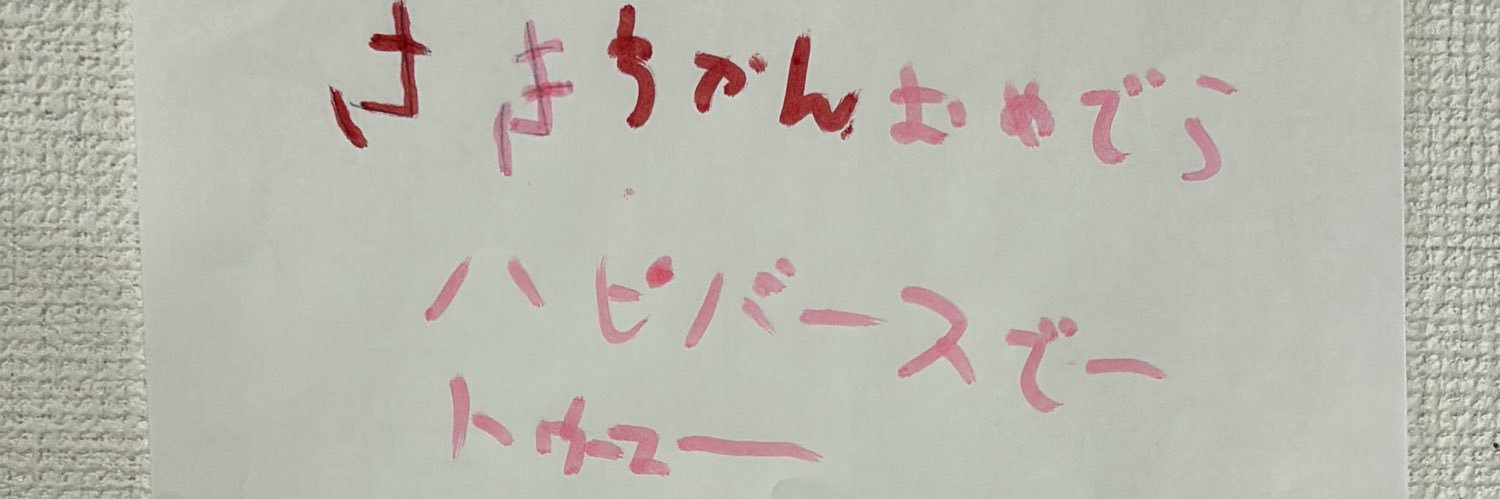 さきちゃんおめでう
ハピバースでー
トゥユー